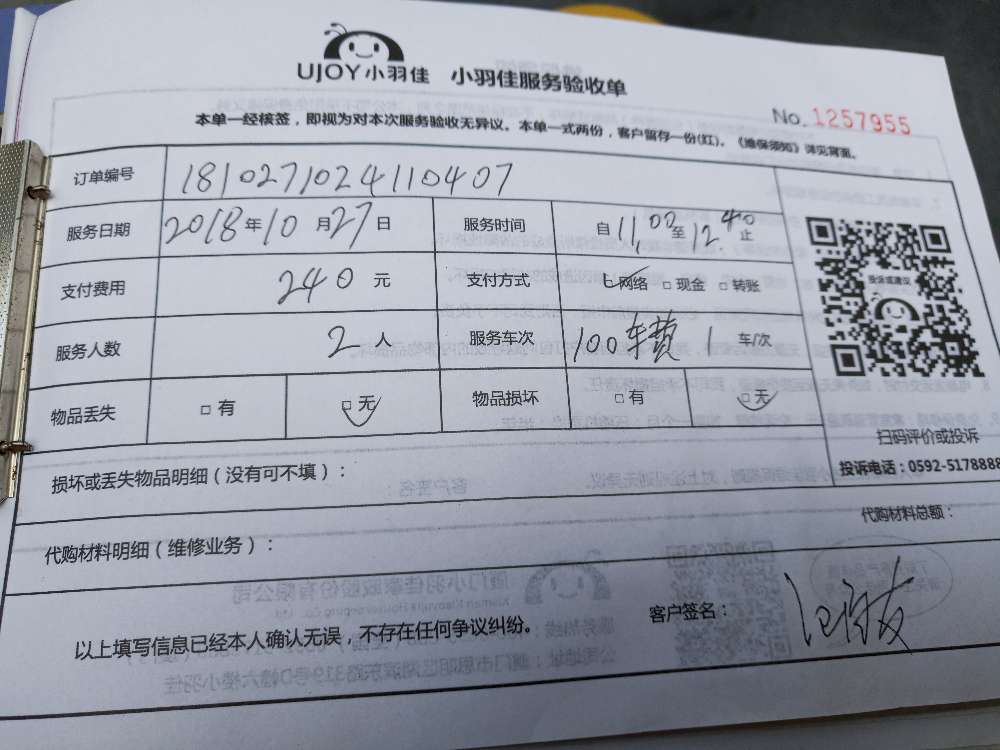 UJOY小羽佳 小羽佳服务验收单
No. 1257955
本单一经核签，即视为对本次服务验收无异议。本单一式两份，客户留存一份(红)。《维保须知》详见背面。
订单编号 1810271024110407
服务日期 2018年10月27日 服务时间 自11:00至12:40止
支付费用 240元 支付方式 网络 □现金 □转账
服务人数 2人 服务车次 100车费 1车/次
物品丢失 □有 □无 物品损坏 □有 □无
投诉或建议
扫码评价或投诉
投诉电话：0592-5178888
损坏或丢失物品明细（没有可不填）：
代购材料明细（维修业务）：
代购材料总额：
以上填写信息已经本人确认无误，不存在任何争议纠纷。
客户签名：